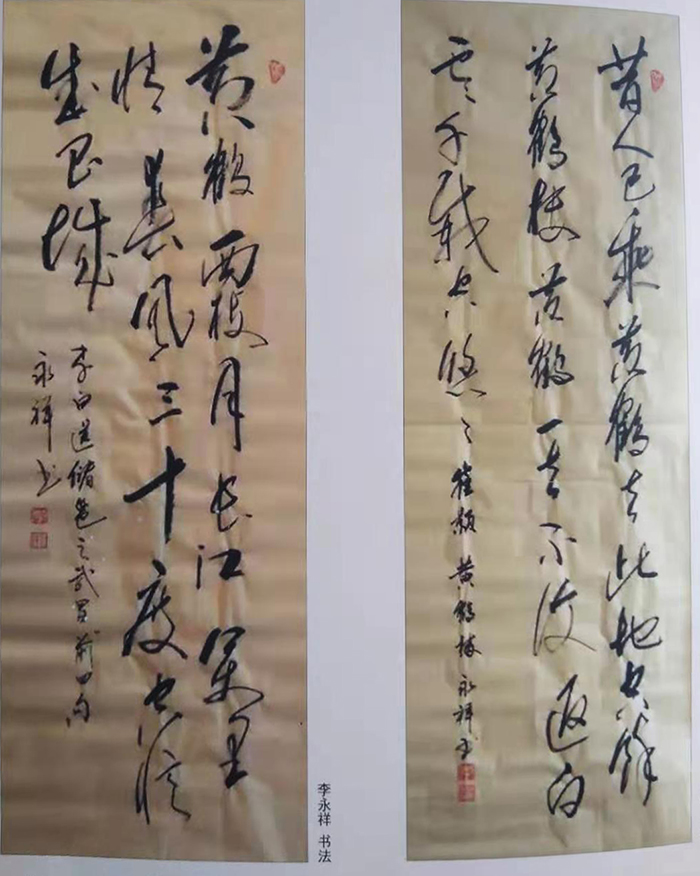 昔人已乘黄鹤去此地空馀
黄鹤楼黄鹤一去不复返白
云千载空悠々
崔颢 黄鹤楼 永祥书
黄鹤西楼月长江万里
情春风三十度空忆
武昌城
李白送储邕之武昌前四句
永祥书
李永祥 书法